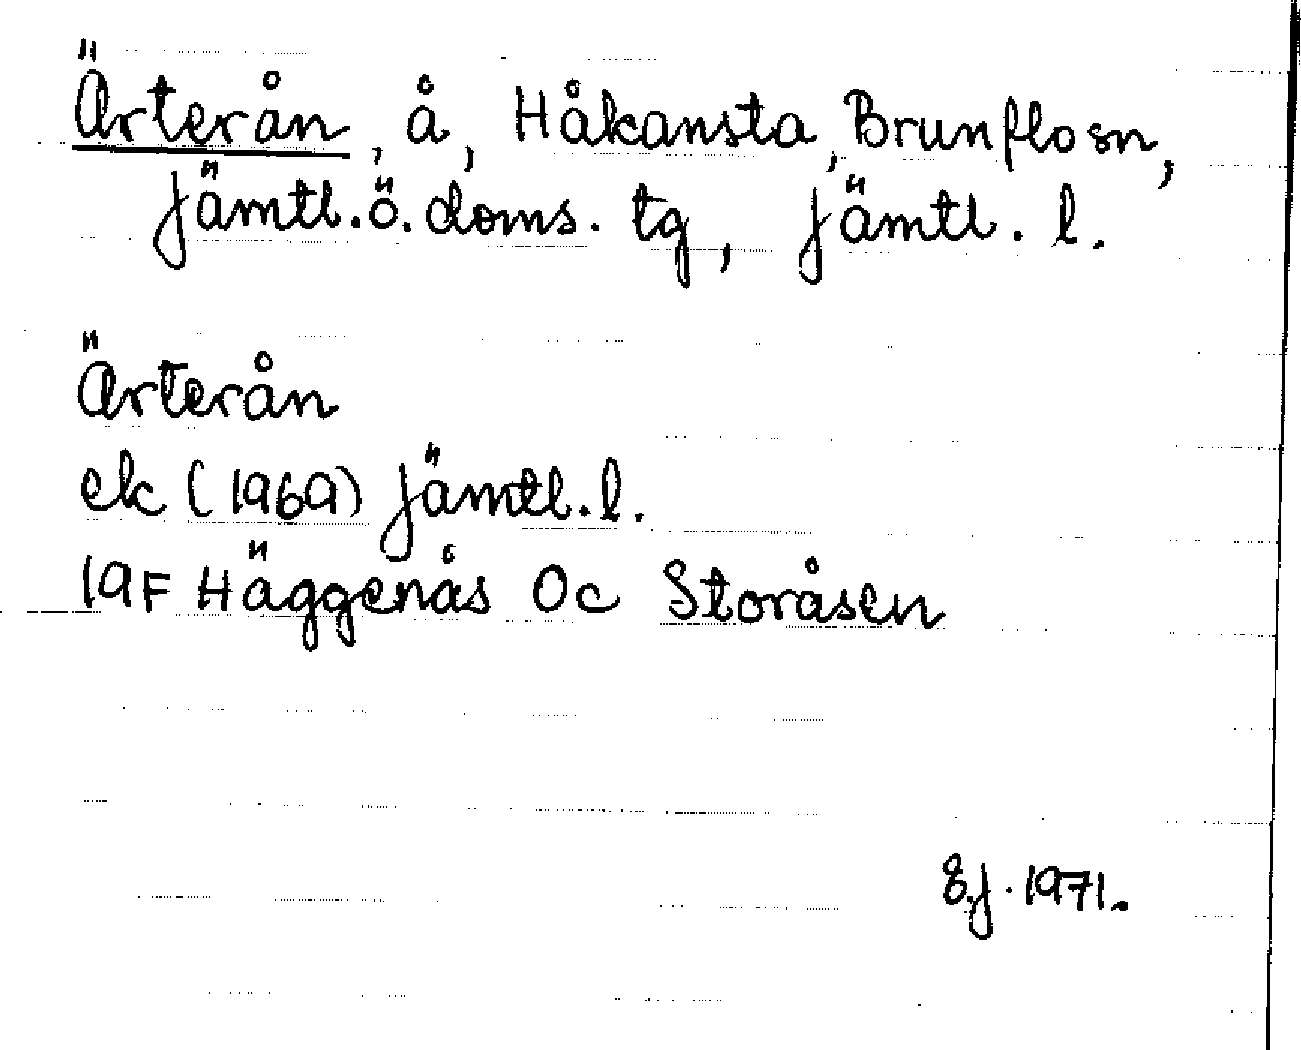 Ärterån, å, Håkansta, Brunflo sn,
Jämtl.ö.doms. tg, Jämtl. l.
Ärterån
ek (1969) Jämtl.l.
19F Häggenås 0c Storåsen
EJ. 1971.